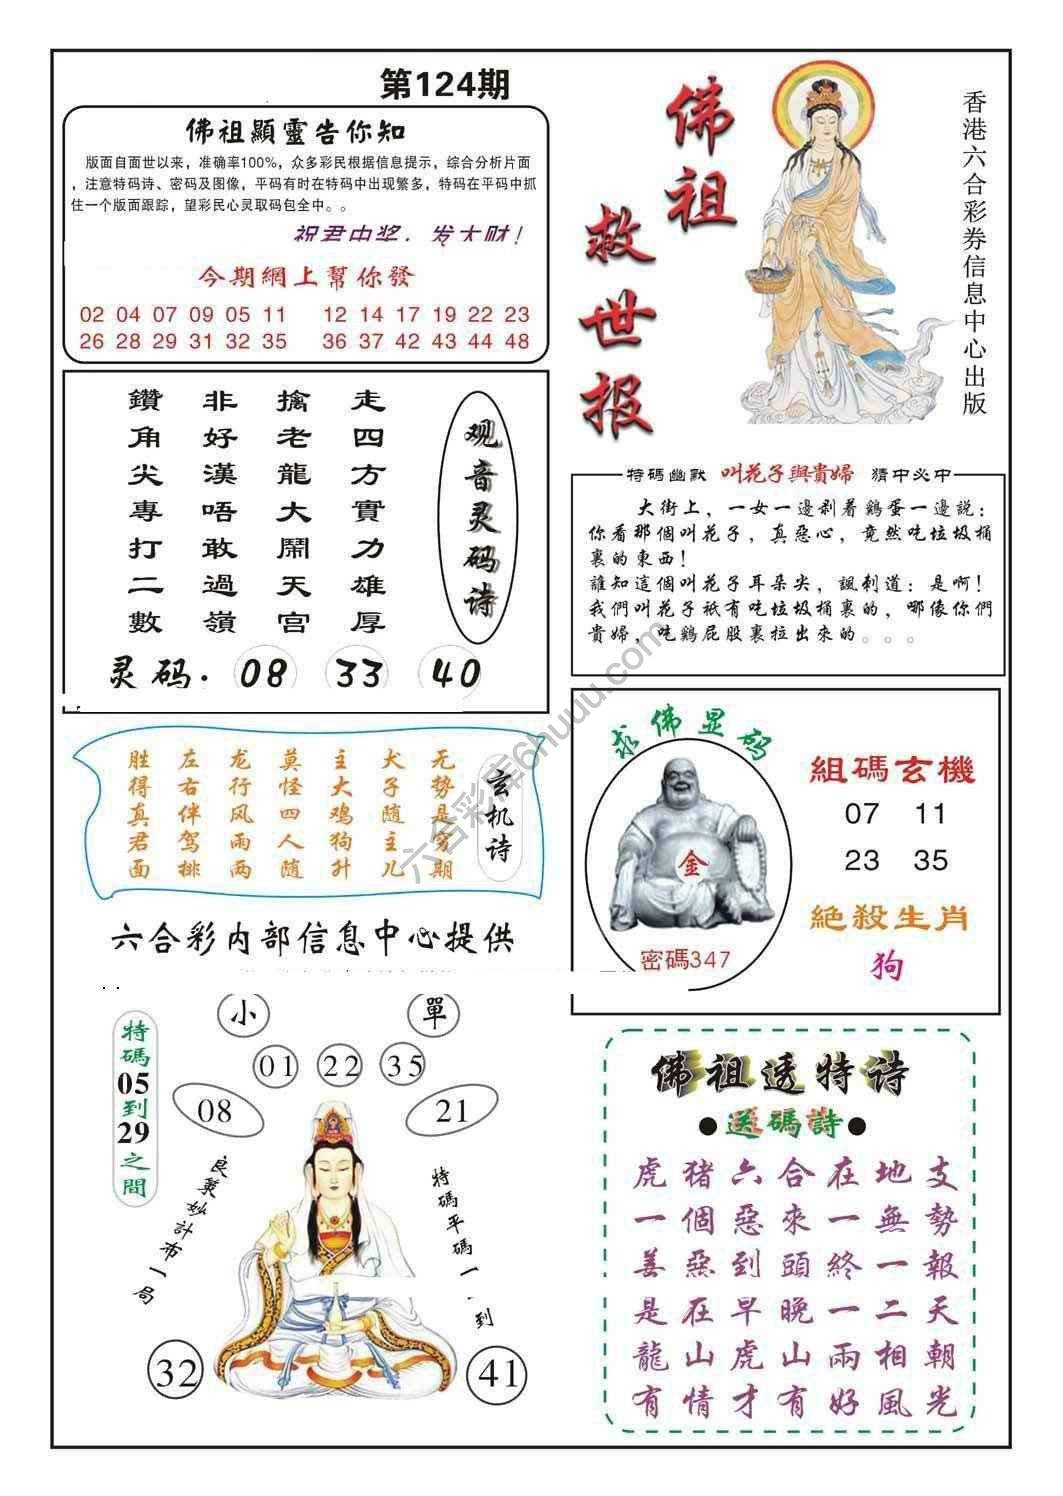 第124期
佛祖顯靈告你知
版面自面世以来，准确率100%，众多彩民根据信息提示，综合分析片面
，注意特码诗、密码及图像，平码有时在特码中出现繁多，特码在平码中抓
住一个版面跟踪，望彩民心灵取码包全中。。
祝君中奖，发大财！
今期網上幫你發
02 04 07 09 05 11 12 14 17 19 22 23
26 28 29 31 32 35 36 37 42 43 44 48
佛祖
救世报
香港六合彩券信息中心出版
观音灵码诗
走四方實力雄厚
擒老龍大鬧天宮
非好漢唔敢過嶺
鑽角尖專打二數
灵码．08 33 40
特碼幽默 叫花子與貴婦 猜中必中
大街上，一女一邊剥着鷄蛋一邊說：
你看那個叫花子，真惡心，竟然吃垃圾桶
裏的東西！
誰知這個叫花子耳朵尖，諷刺道：是啊！
我們叫花子衹有吃垃圾桶裏的，哪像你們
貴婦，吃鷄屁股裏拉出來的。。。
玄机诗
无势是穷期
犬子随主儿
主大鸡狗升
莫怪四人随
龙行风雨两
左右伴驾排
胜得真君面
求佛显码
金
密碼347
組碼玄機
07 11
23 35
絕殺生肖
狗
六合彩内部信息中心提供
小 單
01 22 35
08 21
特碼05到29之間
良策妙計布一局
特碼平碼一一到
32 41
佛祖透特诗
●送碼詩●
虎猪六合在地支
一個惡來一無勢
善惡到頭終一報
是在早晚一二天
龍山虎山兩相朝
有情才有好風光
六合彩库6huuu.com